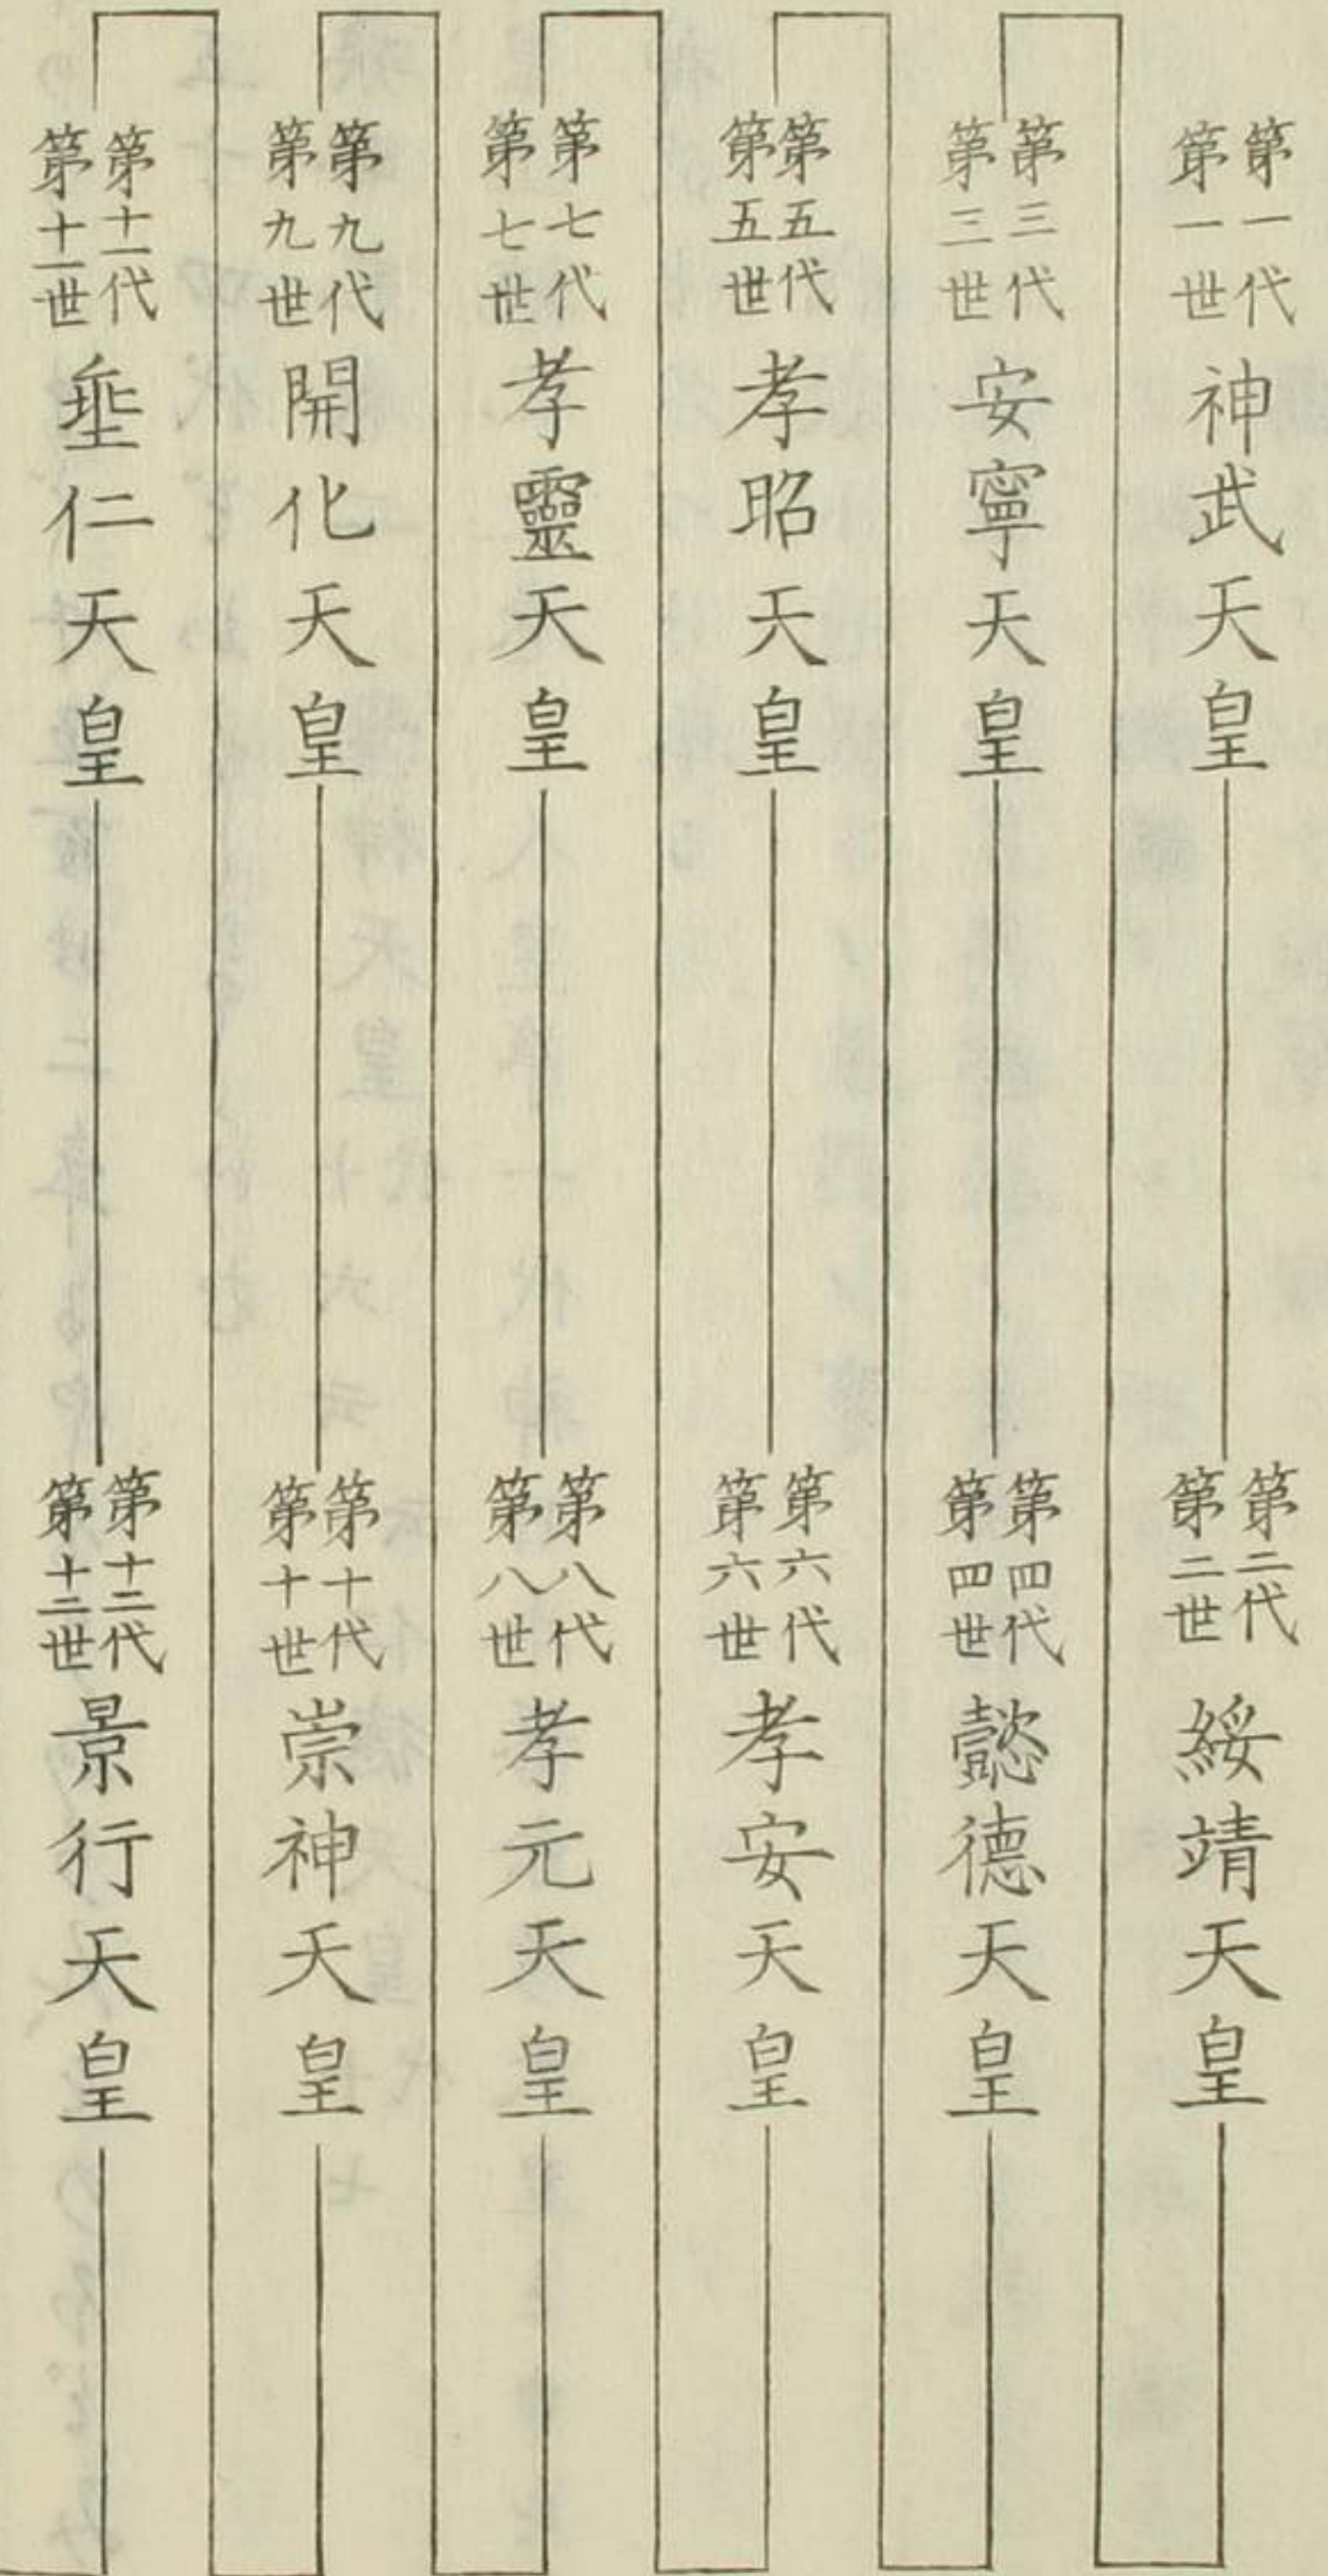 第一代
第一世
神武天皇
第二代
第二世
綏靖天皇
第三代
第三世
安寧天皇
第四代
第四世
懿德天皇
第五代
第五世
孝昭天皇
第六代
第六世
孝安天皇
第七代
第七世
孝靈天皇
第八代
第八世
孝元天皇
第九代
第九世
開化天皇
第十代
第十世
崇神天皇
第十一代
第十一世
垂仁天皇
第十二代
第十二世
景行天皇